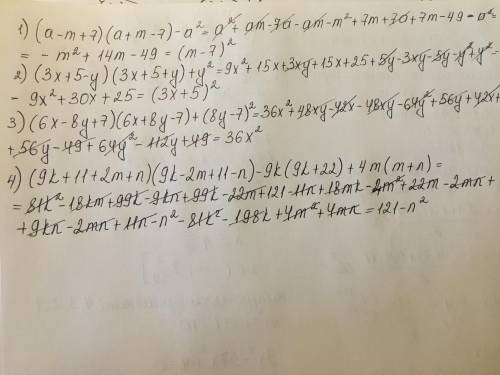 1) (a-m+7)(a+m-7)-a²=a²+am-7a-am-m²+7m+7a+7m-49-a²=
= -m²+14m-49=(m-7)²
2) (3x+5-y)(3x+5+y)+y²=9x²+15x+3xy+15x+25+5y-3xy-5y-y²+y²=
- 9x²+30x+25=(3x+5)²
3) (6x-8y+7)(6x+8y-7)+(8y-7)²=36x²+48xy-42x-48xy-64y²+56y+42x+
+56y-49+64y²-112y+49=36x²
4) (9k+11+2m+n)(9k-2m+11-n)-9k(9k+22)+4m(m+n)=
= 81k²-18km+99k-9kn+99k-22m+121-11n+18mk-4m²+22m-2mn+
+9kn-2mn+11n-n²-81k²-198k+4m²+4mn=121-n²